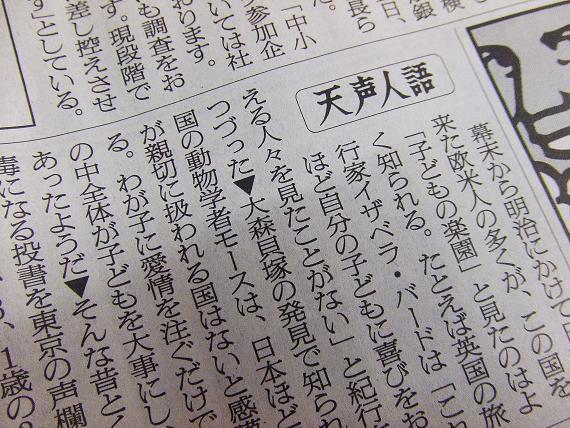 検
銀
日、
長ら
「中小
参加企
いては社
おります。
も調査をお
す。現段階で
差し控えさせ
す」としている。
天声人語
幕末から明治にかけて日
来た欧米人の多くが、この国を
「子どもの楽園」と見たのはよ
く知られる。たとえば英国の旅
行家イザベラ・バードは「これ
ほど自分の子どもに喜びをお
える人々を見たことがない」と紀行
つづった▼大森貝塚の発見で知られ
国の動物学者モースは、日本ほど
が親切に扱われる国はないと感
る。わが子に愛情を注ぐだけで
の中全体が子どもを大事にし
あったようだ▼そんな昔と
毒になる投書を東京の声欄
、1歳の